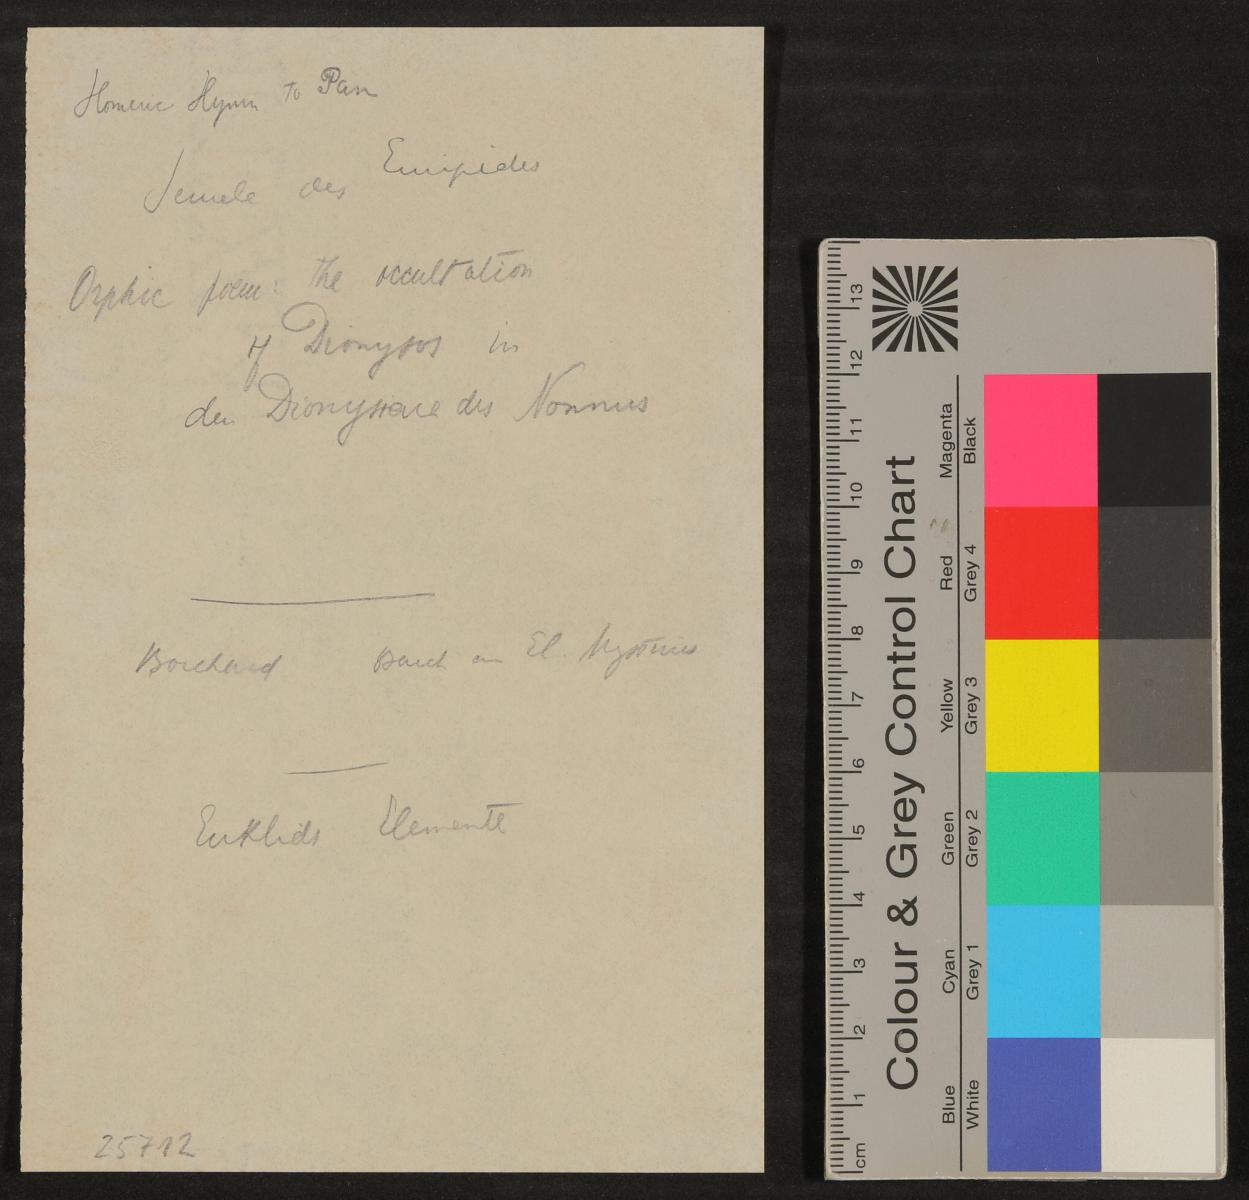 Homeric Hymn to Pan
Semele des Euripides
Orphic poem: the occultation
of Dionysos in
den Dionysiaca des Nonnus
Borchard Buch an El. Mysteries
Euklids Elemente
25712
Colour & Grey Control Chart
Blue Cyan Green Yellow Red Magenta
White Grey 1 Grey 2 Grey 3 Grey 4 Black
cm 1 2 3 4 5 6 7 8 9 10 11 12 13